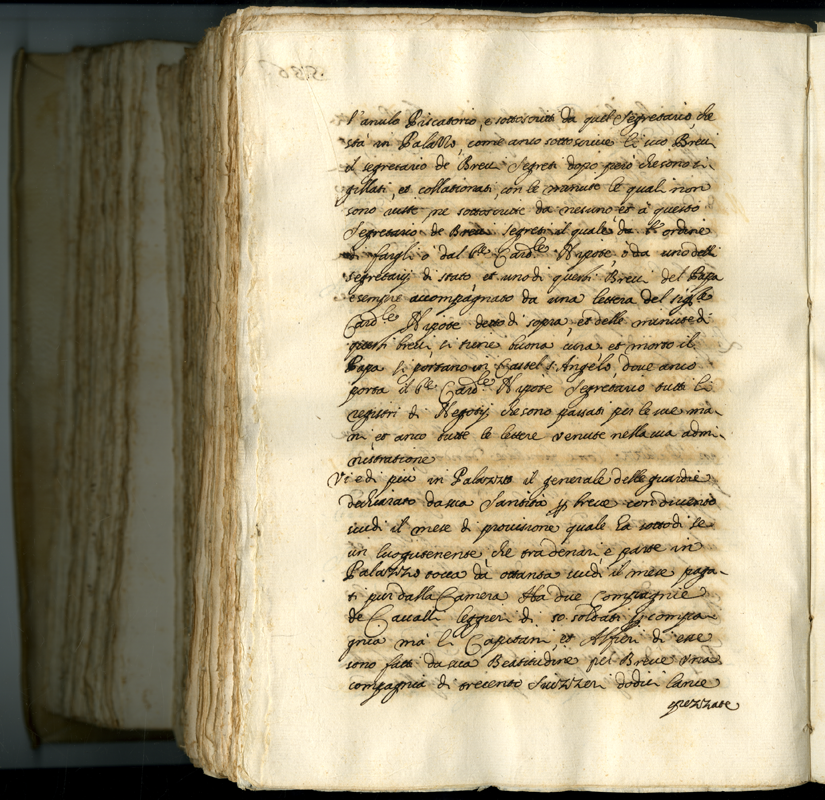 l'anulo Piscatorio, e sottoscritti da quel Segretario, che
sta in Palazzo, come anco sottoscrive li suoi Brevi
il segretario de Brevi Segreti dopo però che sono si-
gillati, et collationati, con le minute le quali non
sono viste ne sottoscritte da nesuno et a questo
Segretario de Brevi segreti il quale da l'ordine
di fargli o dal Card.le Nipote, o da uno delli
segretarij di stato et uno di questi Brevi del Papa
e sempre accompagnato da una lettera del sig.re
Card.le Nipote detto di sopra, et delle minute di
questi brevi si tiene buona cura et morto il
Papa si portano in Castel s. Angelo, dove anco
porta il Card.le Nipote Segretario tutti li
registri di Negotij, che sono passati per le sue ma-
ni, et anco tutte le lettere venute nella sua admi-
nistratione
Vi e di più in Palazzo il generale delle guardie
dechiarato da sua Santità per breve con ducento
scudi il mese di provisione quale ha sotto di se
un luogotenente, che tra denari e parte in
Palazzo tocca da ottanta scudi il mese paga-
ti pur dalla Camera Ha due Compagnie
de Cavalli leggieri di 50 soldati per compa-
gnia ma li Capitani, et Alfieri di esse
sono fatti da sua Beatitudine pel Breve una
compagnia di trecento Suizzeri dodici lancie
spezzate